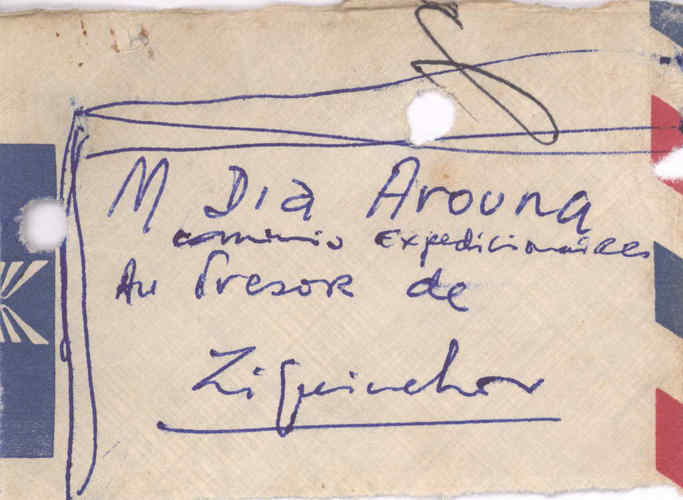 M Dia Arouna
commis Expedicionaires
Au Tresor de
Ziguinchor